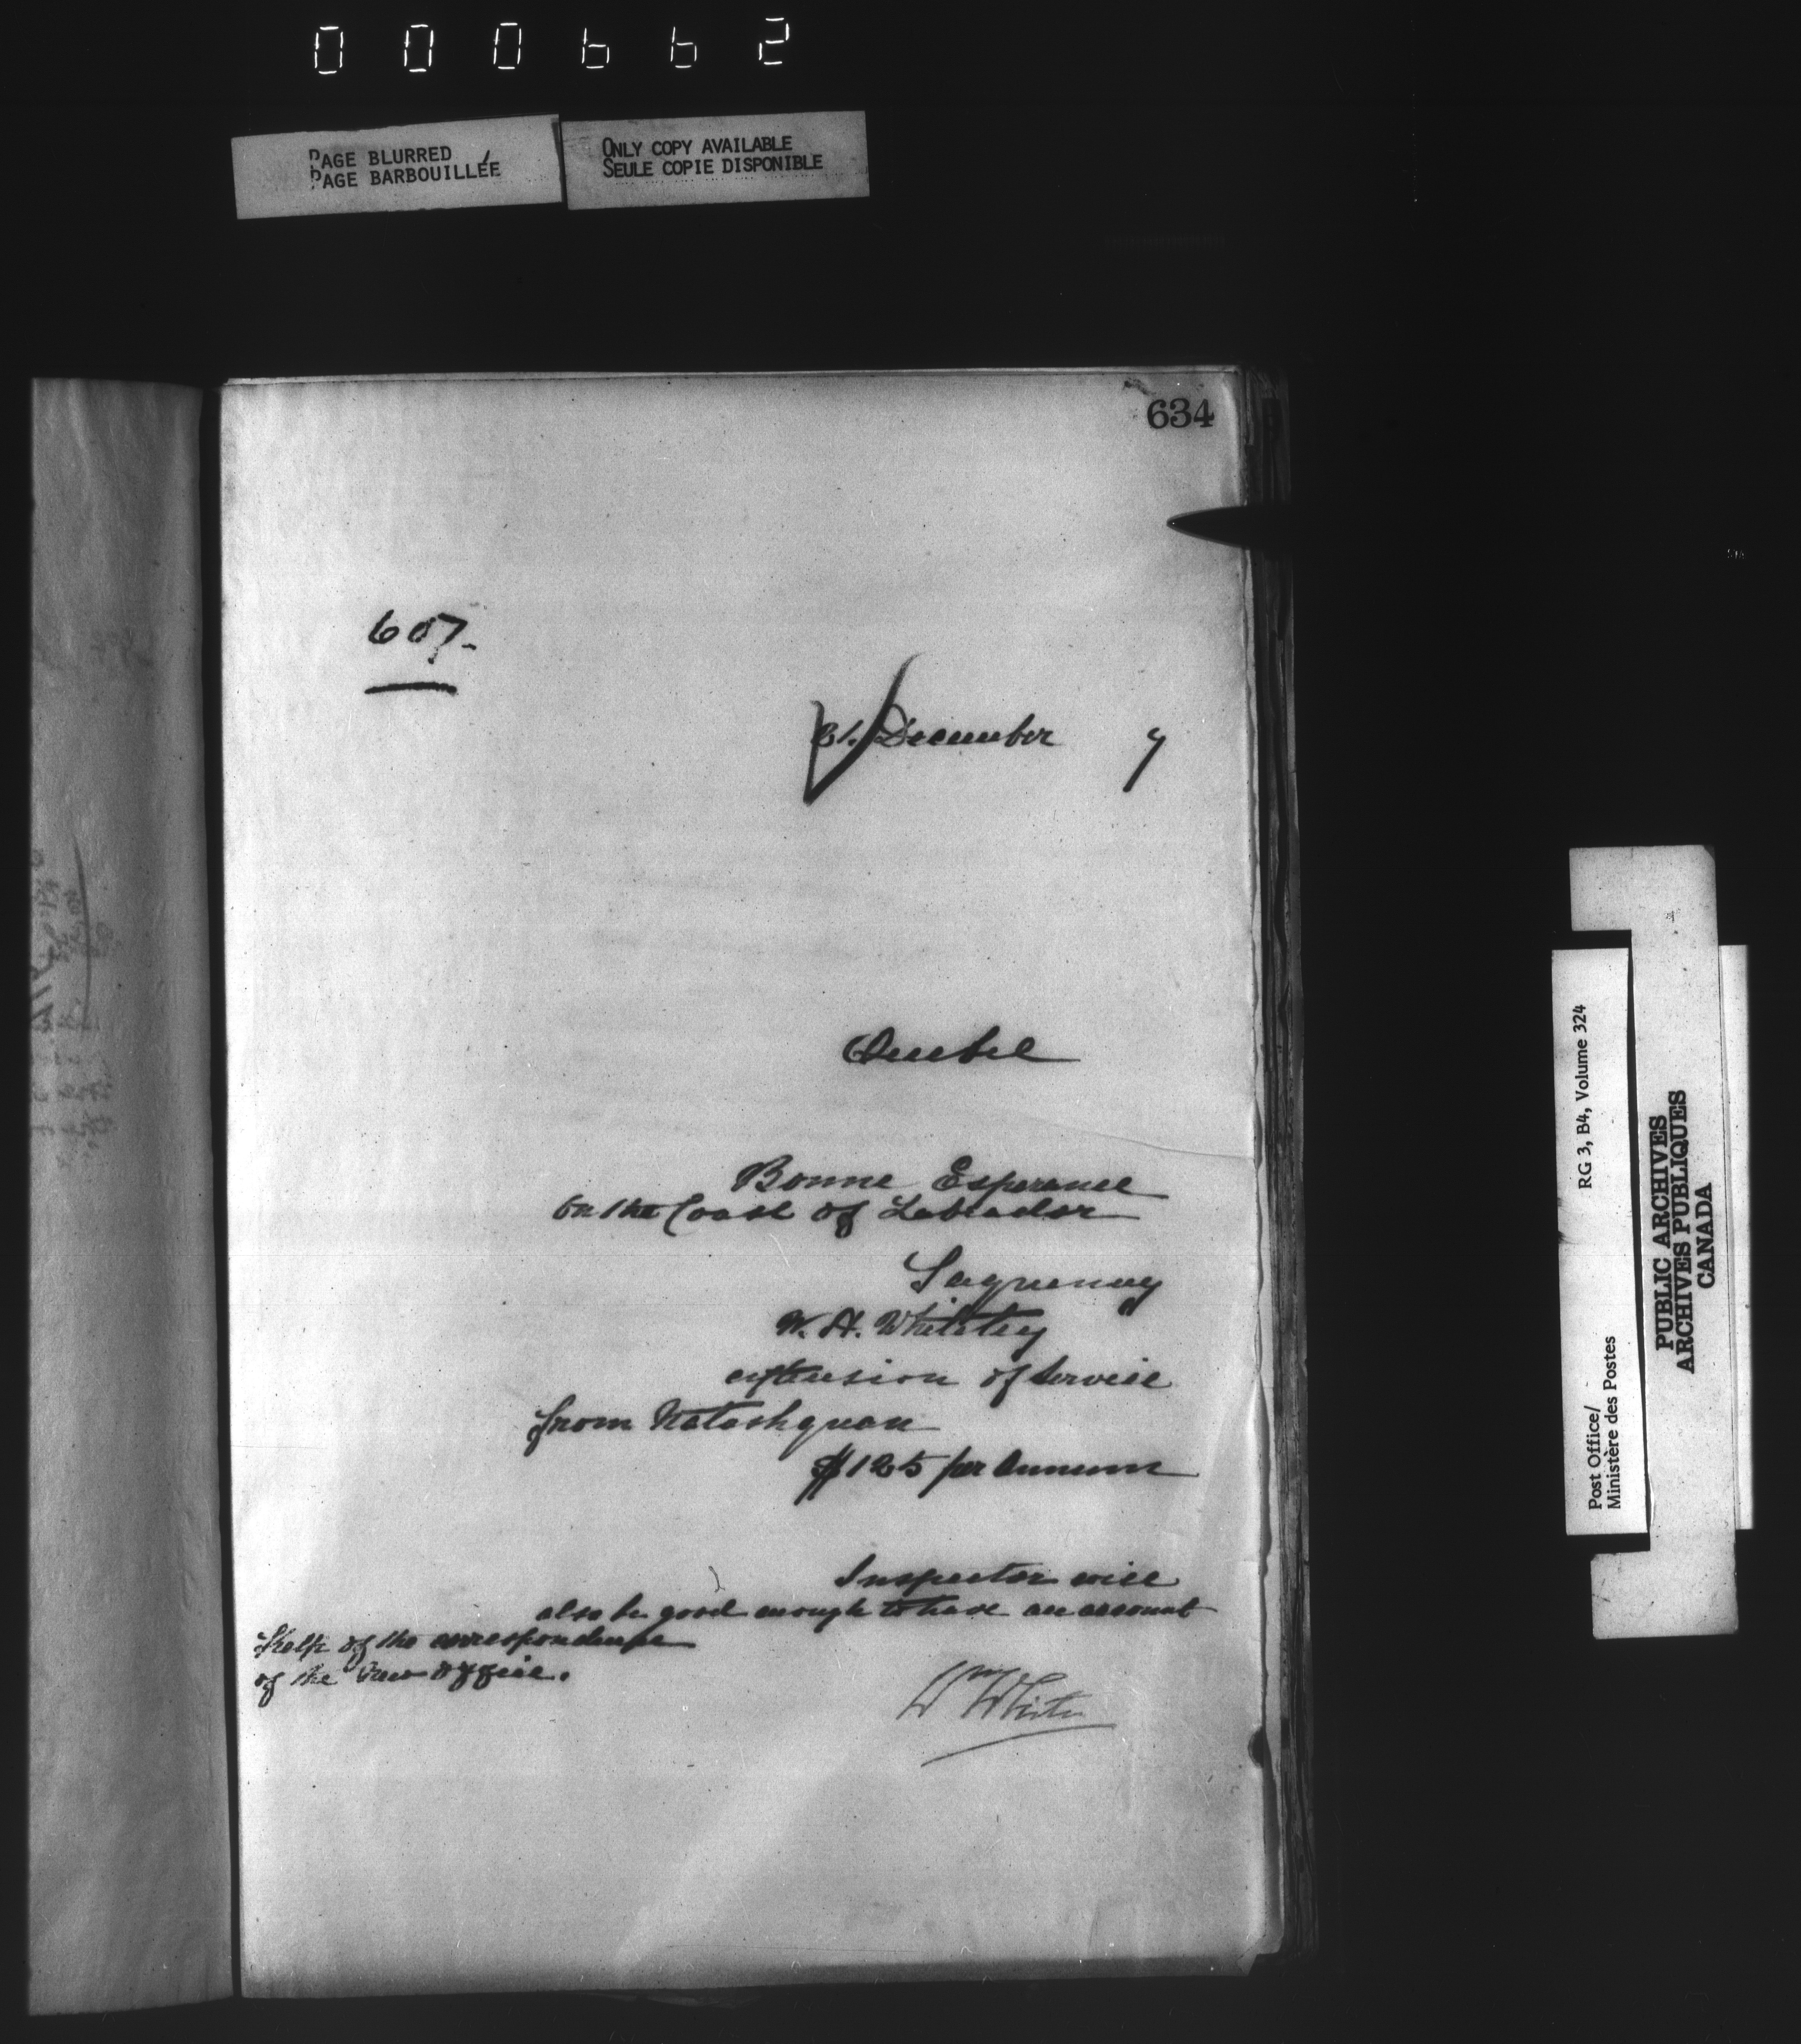 000662
PAGE BLURRED
PAGE BARBOUILLÉE
ONLY COPY AVAILABLE
SEULE COPIE DISPONIBLE
634
607.
31. December 7
Quebec
Bonne Esperance
on the Coast of Labrador
Saguenay
W. H. Whiteley
extension of Service
from Natashquan
$125 per Annum
Inspector will
also be good enough to have an account
Kept of the correspondence
of the new office.
Wm White
RG 3, B4, Volume 324
Post Office/
Ministère des Postes
PUBLIC ARCHIVES
ARCHIVES PUBLIQUES
CANADA